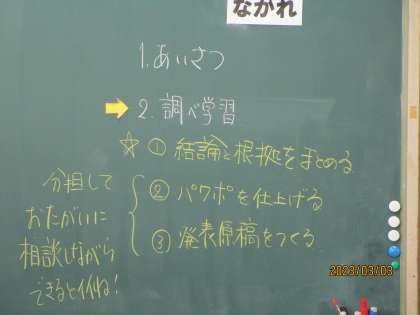 ながれ
1. あいさつ
2. 調べ学習
☆① 結論と根拠をまとめる
② パワポを仕上げる
③ 発表原稿をつくる
分担して
おたがいに
相談しながら
できると仆ね!
2023/03/03